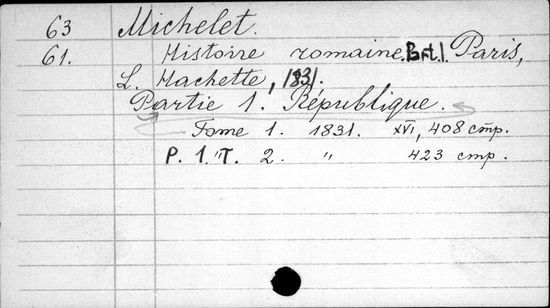 63 Michelet.
61. Histoire romaine. Bd. 1. Paris,
L. Hachette, 1831.
Partie 1. République.
Tome 1. 1831. XVI, 408 стр.
P. 1. T. 2. " 423 стр.